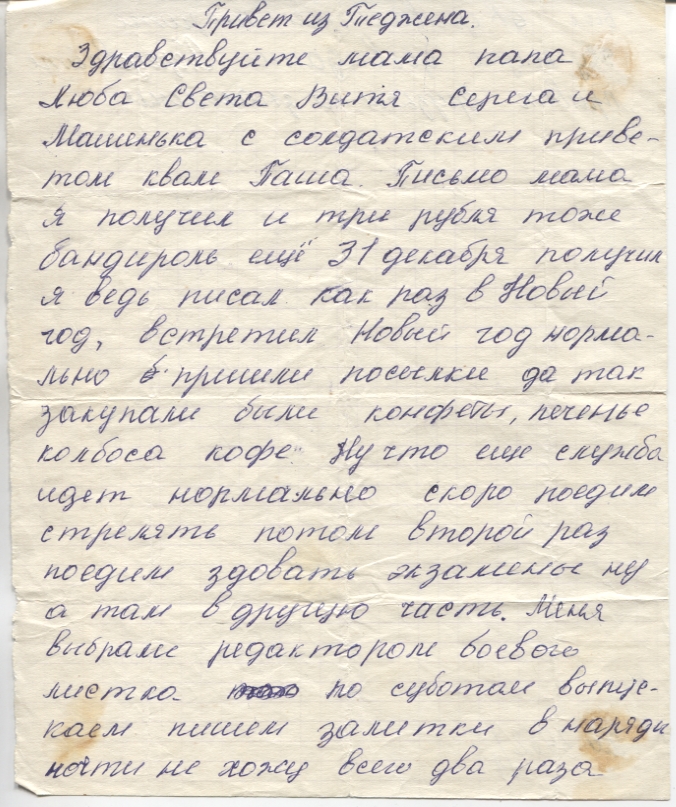 Привет из Теджена.
Здравствуйте мама папа
Люба Света Витя Серега и
Машенька с солдатским приве-
том к вам Паша. Письмо мама
я получил и три рубля тоже
бандироль ещё 31 декабря получил
я ведь писал как раз в Новый
год, встретил Новый год норма-
льно пришли посылки да так
закупали были конфеты, печенье
колбоса кофе. Ну что еще служба
идет нормально скоро поедим
стрелять потом второй раз
поедим здовать экзамены ну
а там в другую часть. Меня
выбрали редактором боевого
листка по суботам выпус-
каем пишем заметки в наряды
почти не хожу всего два раза